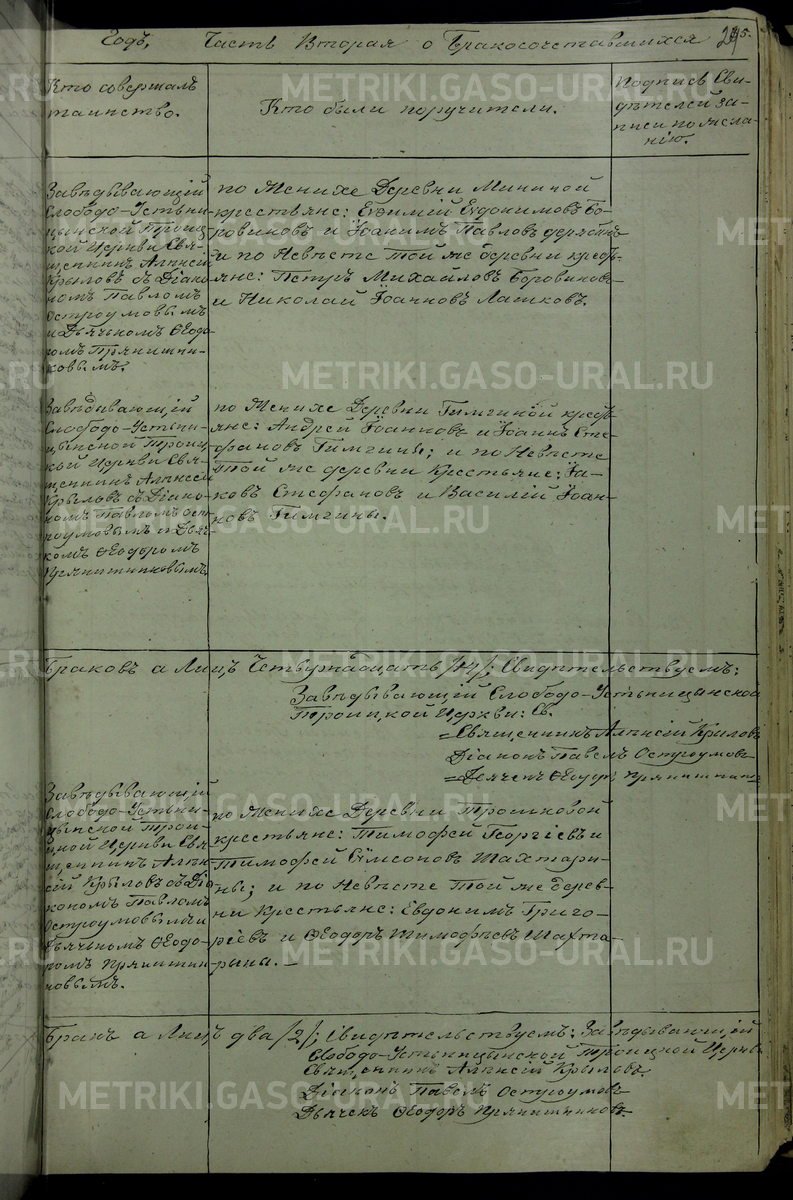 Годъ, Часть Вторая о бракосочетавшихся
Кто совершалъ
таинство.
Кто были поручители.
Подпись Сви-
дѣтелей за-
писи по жела-
нію.
Завѣдывающій
Слободо-Устьни-
цынской Троиц-
кой Церкви Свя-
щенникъ Алексій
Крыловъ съ Діако-
номъ Павломъ
Остроумовымъ
и Дьячкомъ Ѳеодо-
ромъ Прянишни-
ковымъ.
по Женихѣ Деревни Мининой
крестьяне: Евѳимій Евдокимовъ Бо-
ровиковъ и Іоакимъ Павловъ
и по Невѣстѣ той же деревни кресть-
яне: Петръ Михайловъ Боровиковъ
и Николай Іоанновъ Лашковъ.
Завѣдывающій
Слободо-Устьни-
цынской Троиц-
кой Церкви Свя-
щенникъ Алексій
Крыловъ съ Діако-
номъ Павломъ Ост-
роумовымъ и Дьяч-
комъ Ѳеодоромъ
Прянишниковымъ.
по Женихѣ Деревни Гимгиной кресть-
яне: Андрей Іоанновъ и Іоаннъ Сте-
фановъ Гимгины; и по Невѣстѣ
той же деревни Крестьяне: Іа-
ковъ Стефановъ и Василій Іоан-
новъ Гимгины.
Браковъ а Лицъ Четырнадцать /14/; Свидѣтельствуемъ:
Завѣдывающій Слободо-Устьницынской
Троицкой Церкви: Св.
Священникъ Алексій Крыловъ
Діаконъ Павелъ Остроумовъ
Дьячекъ Ѳеодоръ Прянишниковъ
Завѣдывающій
Слободо-Устьни-
цынской Трои-
цкой Церкви Свя-
щенникъ Алек-
сій Крыловъ съ Діа-
кономъ Павломъ
Остроумовымъ и
Дьячкомъ Ѳеодо-
ромъ Прянишни-
ковымъ.
по Женихѣ Деревни Трошковой
крестьяне: Тимофей Георгіевъ и
Тимофей Сѵмеоновъ Шахтари-
ны; и по Невѣстѣ той же дерев-
ни Крестьяне: Евдокимъ Григо-
ріевъ и Ѳеодоръ Тимофѣевъ Шахта-
рины.
Бракъ а Лицъ два /2/; Свидѣтельствуемъ: Завѣдывающій
Слободо-Устьницынской Троицкой Церкви
Священникъ Алексій Крыловъ.
Діаконъ Павелъ Остроумовъ
Дьячекъ Ѳеодоръ Прянишниковъ.
METRIKI.GASO-URAL.RU